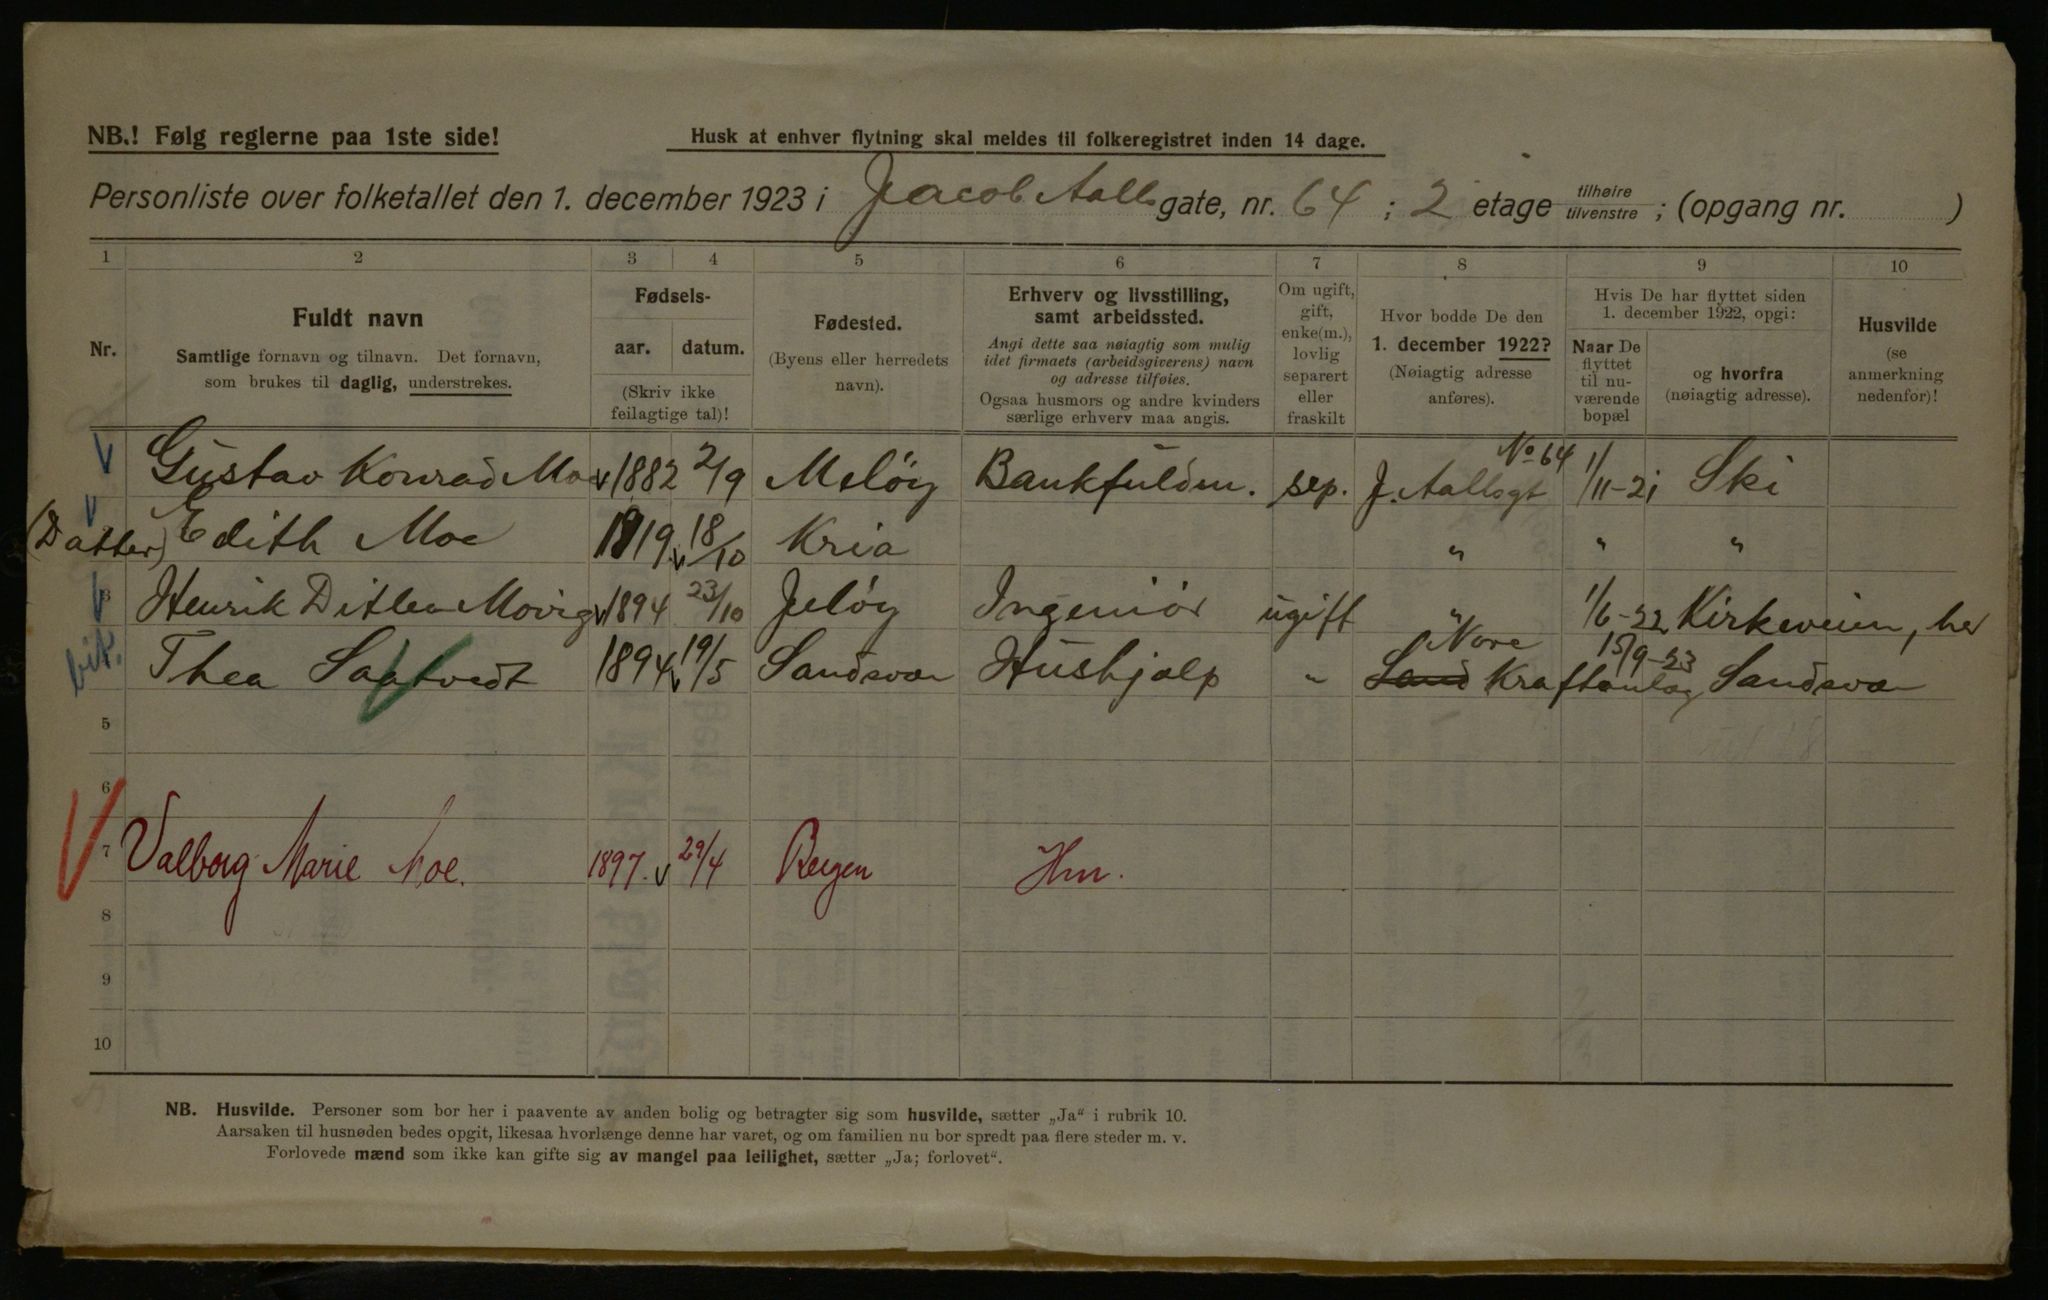 NB.! Følg reglerne paa 1ste side!
Husk at enhver flytning skal meldes til folkeregistret inden 14 dage.
Personliste over folketallet den 1. december 1923 i Jacob Aalls gate, nr. 64 ; 2 etage tilhøire tilvenstre ; (opgang nr. )
1 2 3 4 5 6 7 8 9 10
Nr.
Fuldt navn
Samtlige fornavn og tilnavn. Det fornavn,
som brukes til daglig, understrekes.
Fødsels-
aar. datum.
(Skriv ikke
feilagtige tal)!
Fødested.
(Byens eller herredets
navn).
Erhverv og livsstilling,
samt arbeidssted.
Angi dette saa nøiagtig som mulig
idet firmaets (arbeidsgiverens) navn
og adresse tilføies.
Ogsaa husmors og andre kvinders
særlige erhverv maa angis.
Om ugift,
gift,
enke(m.),
lovlig
separert
eller
fraskilt
Hvor bodde De den
1. december 1922?
(Nøiagtig adresse
anføres).
Hvis De har flyttet siden
1. december 1922, opgi:
Naar De
flyttet
til nu-
værende
bopæl
og hvorfra
(nøiagtig adresse).
Husvilde
(se
anmerkning
nedenfor)!
Gustav Konrad Moe 1882 2/9 Meløy Bankfuldm. sep. J. Aallsgt No 64 1/11-21 Ski
(Datter) Edith Moe 1919 18/10 Kria " " "
3 Henrik Ditlev Movig 1894 23/10 Jeløy Ingeniør ugift " 1/6-22 Kirkeveien, her
bit. Thea Saatvedt 1894 19/5 Sandsvær Hushjælp " Nore Kraftanlæg 15/9-23 Sandsvær
5
6
7 Valborg Marie Moe. 1897. 29/4 Bergen Hm.
8
9
10
NB. Husvilde. Personer som bor her i paavente av anden bolig og betragter sig som husvilde, sætter „Ja“ i rubrik 10.
Aarsaken til husnøden bedes opgit, likesaa hvorlænge denne har varet, og om familien nu bor spredt paa flere steder m. v.
Forlovede mænd som ikke kan gifte sig av mangel paa leilighet, sætter „Ja; forlovet“.